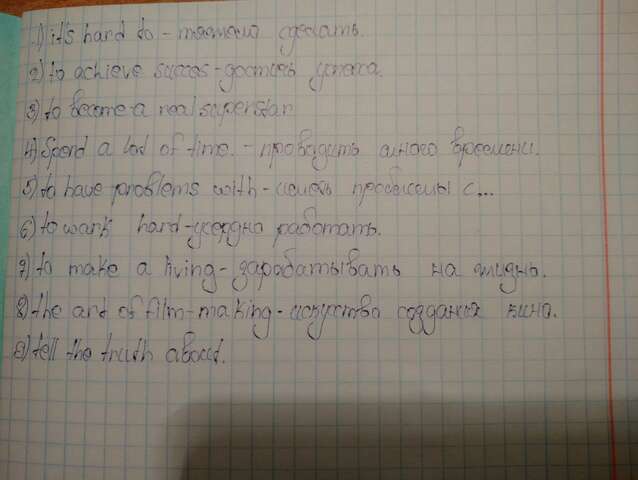 1) it's hard to - тяжело сделать.
2) to achieve succes - достичь успеха.
3) to become a real superstar
4) Spend a lot of time. - проводить много времени.
5) to have problems with - иметь проблемы с...
6) to work hard - усердно работать.
7) to make a living - зарабатывать на жизнь.
8) the art of film-making - искусство создания кино.
9) tell the truth about.